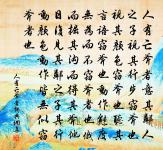 人有亡斧者意其鄰
之子視其行步竊斧也
視其顏色竊斧也聽其
言語竊斧也動作態度
無為而不竊斧者也俄
而掘其溝而得其斧
日復見其鄰之子其行
動顏色動作皆無似竊
斧者也
人有亡斧者